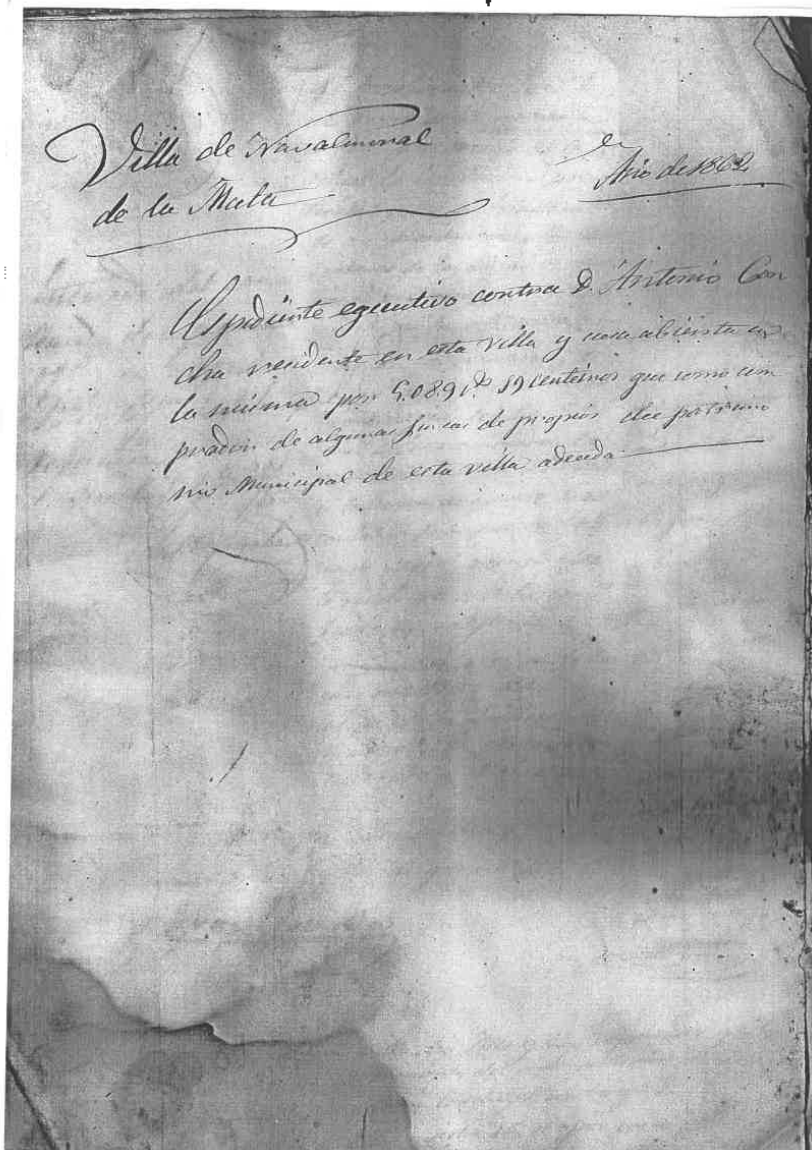 Villa de Navalmoral
de la Mata
Año de 1862
Espediente egecutivo contra D. Antonio Con
cha residente en esta villa y casa abierta en
la misma por 5.089 rs. 59 centimos que como com
prador de algunas fincas de propios del patrimo
nio Municipal de esta villa adeuda